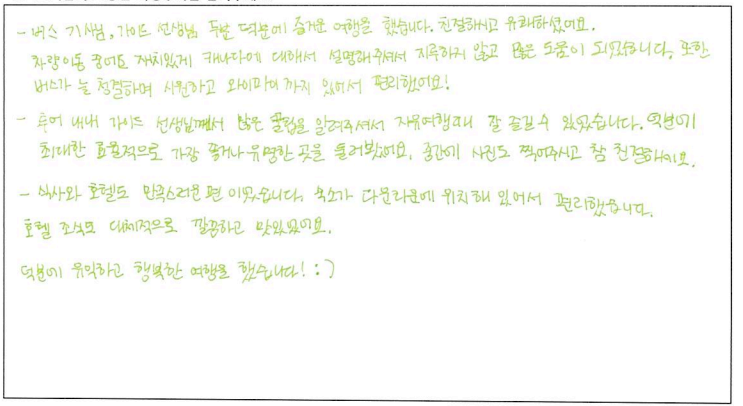 - 버스 기사님, 가이드 선생님 두분 덕분에 즐거운 여행을 했습니다. 친절하시고 유쾌하셨어요.
차량이동 중에도 재치있게 캐나다에 대해서 설명해주셔서 지루하지 않고 많은 도움이 되었습니다. 또한
버스가 늘 청결하며 시원하고 와이파이까지 있어서 편리했어요!
- 투어 내내 가이드 선생님께서 많은 꿀팁을 알려주셔서 자유여행때 잘 즐길 수 있었습니다. 덕분에
최대한 효율적으로 가장 좋거나 유명한 곳을 둘러봤어요. 중간에 사진도 찍어주시고 참 친절하세요.
- 식사와 호텔도 만족스러운 편 이었습니다. 숙소가 다운타운에 위치해 있어서 편리했습니다.
호텔 조식도 대체적으로 깔끔하고 맛있었어요.
덕분에 유익하고 행복한 여행을 했습니다! :)